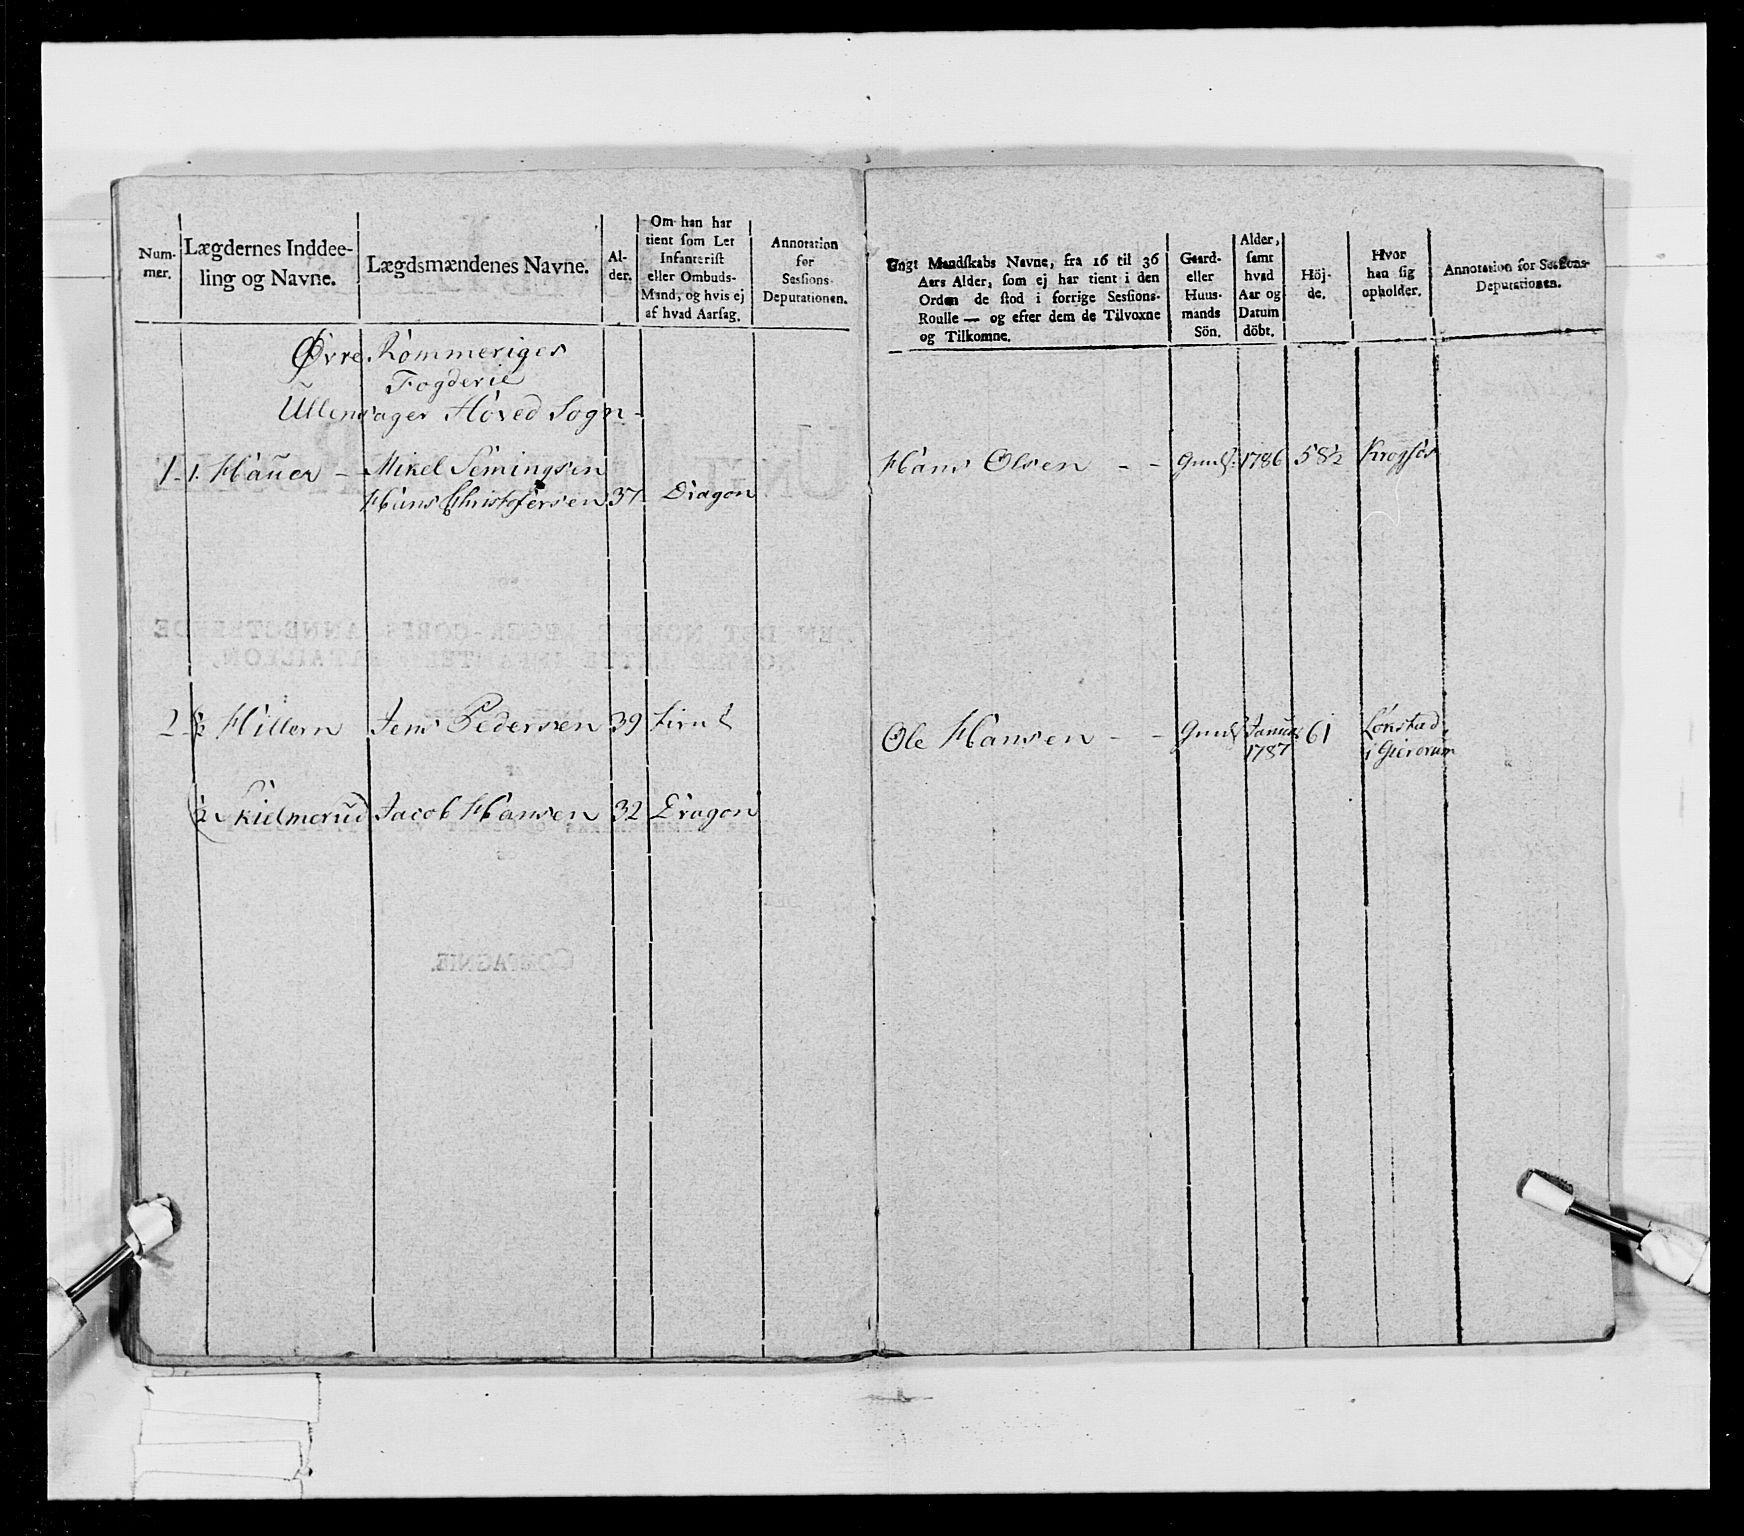 Num-
mer.
Lægdernes Inddee-
ling og Navne.
Lægdsmændenes Navne.
Al-
der.
Om han har
tient som Let
Infanterist
eller Ombuds-
Mand, og hvis ej
af hvad Aarsag.
Annotation
for
Sessions-
Deputationen.
Øvre Rommeriges
Fogderie
Ullensager Hoved Sogn
1. 1. Hauer - Mikel Semingsen
Hans Christofersen 37 Dragon
2 ½ Hillern Jens Pedersen 39
½ Kielmerud Jacob Hansen 32 Dragon
Ungt Mandskabs Navne, fra 16 til 36
Aars Alder, som ej har tient i den
Orden de stod i forrige Sessions-
Roulle — og efter dem de Tilvoxne
og Tilkomne.
Gaard-
eller
Huus-
mands
Sön.
Alder,
samt
hvad
Aar og
Datum
döbt.
Höj-
de.
Hvor
han sig
opholder.
Annotation for Sessions-
Deputationen.
Hans Olsen - - 1786 58½
Ole Hansen - - 61
1787 i